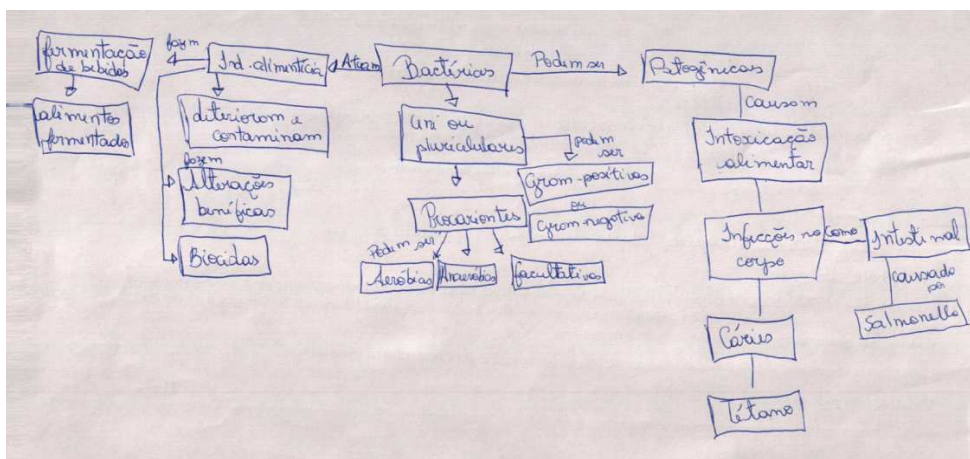 fermentação
de bebidas
fazem
Ind. alimentícia
Atuam
Bactérias
Podem ser
Patogênicas
alimentos
fermentado
deterioram e
contaminam
fazem
Alterações
benéficas
Biocidas
Uni ou
pluricelulares
podem
ser
Gram-positivas
ou
Gram-negativa
Procariontes
Podem ser
Aeróbias
Anaeróbias
facultativas
causam
Intoxicação
alimentar
Infecções no
corpo
como
Intestinal
causado
por
Salmonella
Cáries
Tétano